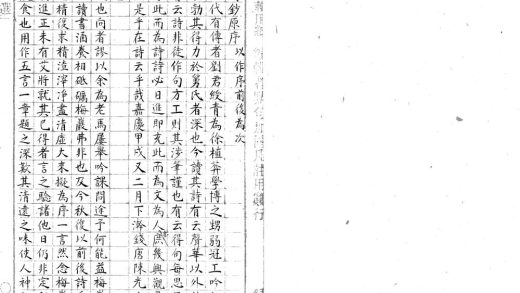 鈔原序 以作序前後為次
代有傳者劉君紋青為徐植莽學博之甥弱冠工吟
勃其得力於舅氏者深也今讀其詩有云聲華以外
云詩非徒作句方工則其涉筆謹也有云得句每思
而為詩詩必日進即充此而為文為人庶幾興觀
是乎在詩云乎哉嘉慶甲戌又二月下澣錢唐陳光
也向者謬以余為老馬屢舉吟課問途予何能益梅
讀書酒奏相砥礪梅巖弗非也及今秋復以前後詩
精復求精渣滓淨盡清虛大來擬為序一言然念梅
進正未有艾將就其已得者言之驗諸他日仍非定
食也用作五言一章題之深歎其清遺之味使人神